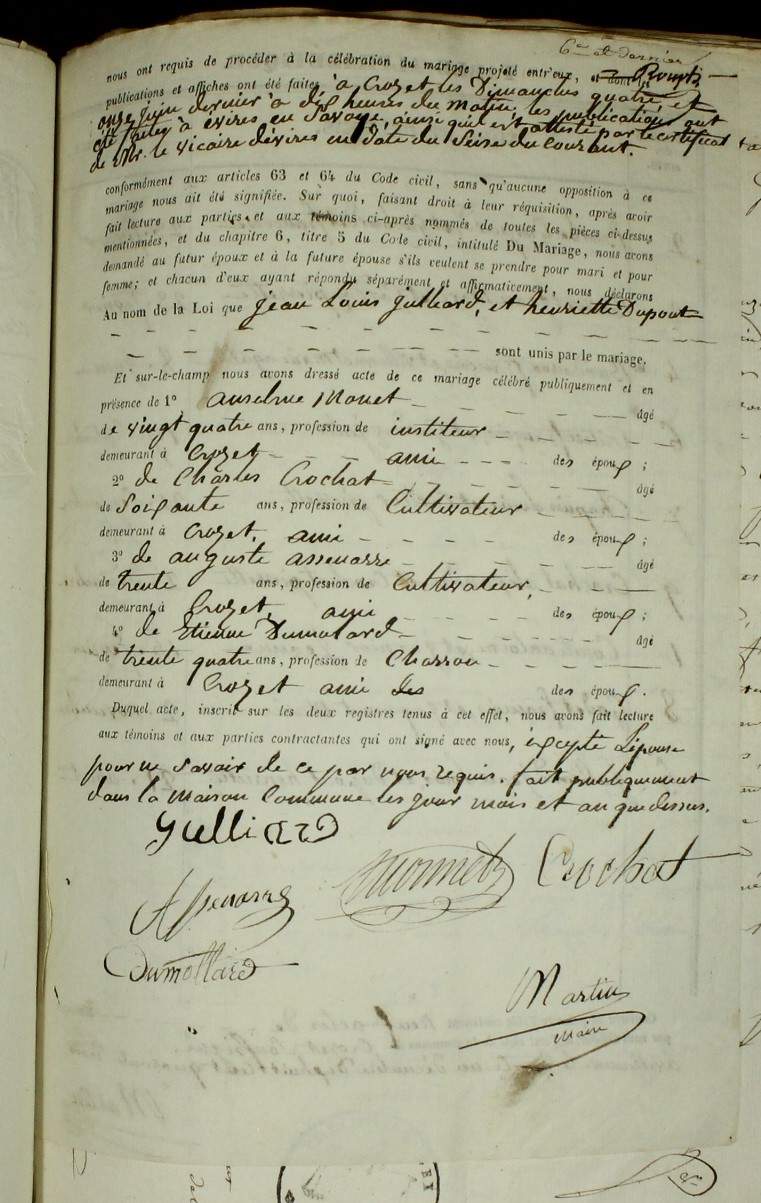 6e et dernier
nous ont requis de procéder à la célébration du mariage projeté entr'eux, et dont les
publications et affiches ont été faites, à Crozet les Dimanches quatre et
onze juin dernier à dix heures du matin, les publications ont
été faites à évires en Savoye, ainsi qu'il est attesté par le certificat
de Mr. le vicaire d'évires en date du Seize du courant.
conformément aux articles 63 et 64 du Code civil, sans qu'aucune opposition à ce
mariage nous ait été signifiée. Sur quoi, faisant droit à leur réquisition, après avoir
fait lecture aux parties et aux témoins ci-après nommés de toutes les pièces ci-dessus
mentionnées, et du chapitre 6, titre 5 du Code civil, intitulé Du Mariage, nous avons
demandé au futur époux et à la future épouse s'ils veulent se prendre pour mari et pour
femme; et chacun d'eux ayant répondu séparément et affirmativement, nous déclarons
Au nom de la Loi que jean Louis julliard, et henriette Dupont
sont unis par le mariage.
Et sur-le-champ nous avons dressé acte de ce mariage célébré publiquement et en
présence de 1° anselme Monet âgé
de vingt quatre ans, profession de institeur
demeurant à Crozet ami des époux ;
2° de Charles Crochat âgé
de Soixante ans, profession de Cultivateur
demeurant à Crozet, ami des époux ;
3° de auguste assenarre âgé
de trente ans, profession de Cultivateur,
demeurant à Crozet, ami des époux ;
4° de Etienne Dumolard âgé
de trente quatre ans, profession de Charron
demeurant à Crozet ami des des époux.
Duquel acte, inscrit sur les deux registres tenus à cet effet, nous avons fait lecture
aux témoins et aux parties contractantes qui ont signé avec nous, excepté L'épouse
pour ne Savoir de ce par nous requis. fait publiquement
dans la maison Commune les jour mois et an que dessus.
julliard
Monnet Crochat
Assenarre
Dumollard
Martin
Maire